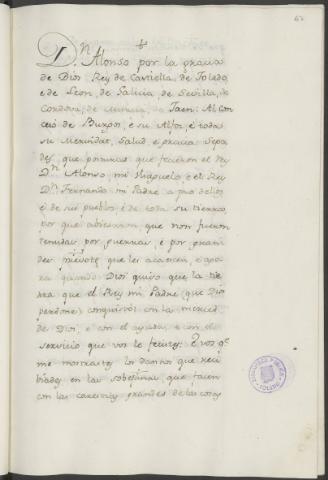 62
D.n Alonso por la gracia
de Dios Rey de Castiella, de Toledo,
e de Leon, de Galicia, de Sevilla, de
Cordova, de Murcia, de Jaen: Al Con
ceio de Burgos, e su Alfoz, e toda
su Merindat, Salud, e gracia Sepa
des, que posturas que ficieron el Rey
D.n Alonso, mi Visguelo e el Rey
D.n Fernando mi Padre a pro dellos
e de sus pueblos e de toda su tierra,
por que non fueron
tenudas por guerras, e por gran
des que les acaecen, e ago
ra quando Dios quiso que la tie
rra que el Rey mi Padre (que Dios
perdone) conquirió con la merced
de Dios, e con el ayuda, e con el
servicio que vos le ficistes: E vos q.e
me mostrastes los dannos que reci
biades en las sobejanias, que facen
con las carestias grandes de las cosas